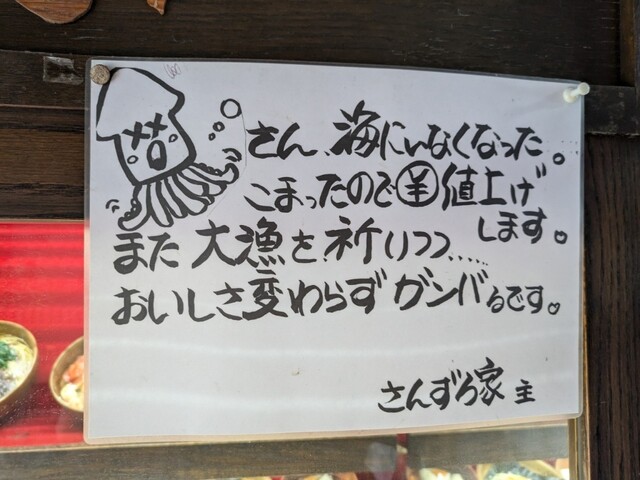 さん、海にいなくなった。
こまったので¥値上げ
します。
また大漁を祈りつつ......
おいしさ変わらずガンバるです。
さんずろ家 主